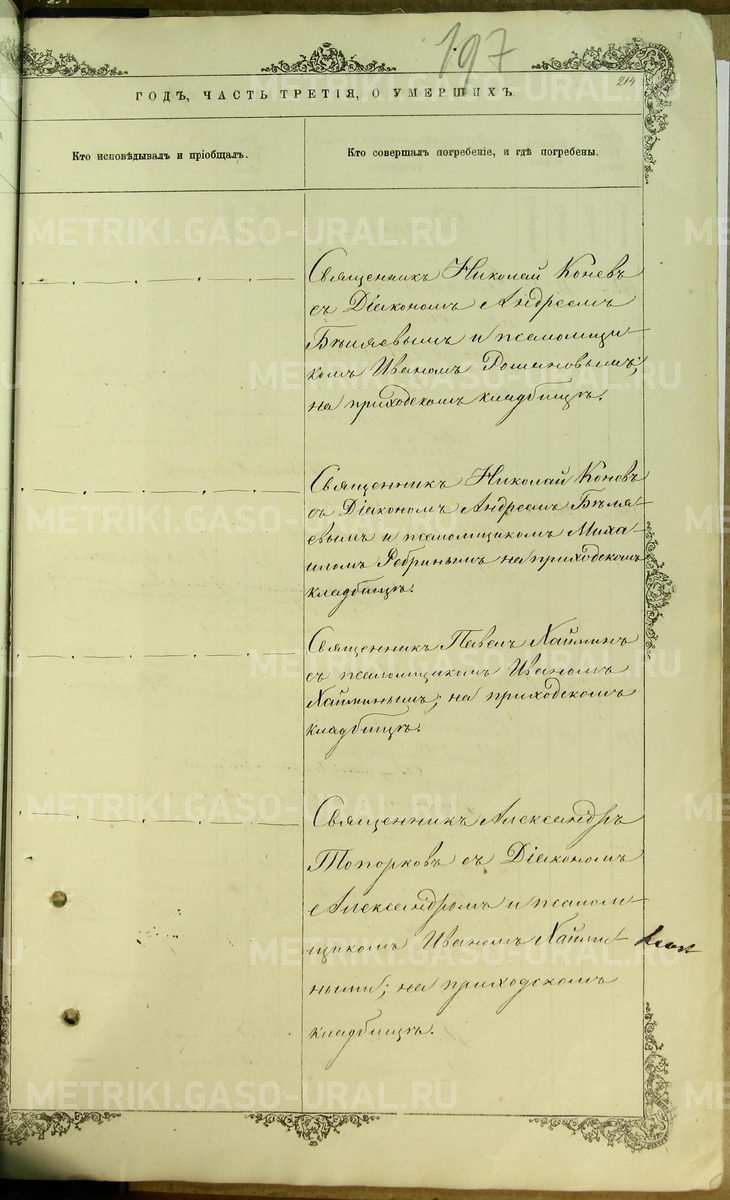 197
214
ГОДЪ, ЧАСТЬ ТРЕТІЯ, О УМЕРШИХЪ.
Кто исповѣдывалъ и пріобщалъ.
Кто совершалъ погребеніе, и гдѣ погребены.
Священникъ Николай Коневъ
съ Діакономъ Андреемъ
Бѣляевымъ и псаломщи-
комъ Иваномъ Романовымъ;
на приходскомъ кладбищѣ.
Священникъ Николай Коневъ
съ Діакономъ Андреемъ Бѣля-
евымъ и псаломщикомъ Миха-
иломъ Ребринымъ на приходскомъ
кладбищѣ.
Священникъ Павелъ Хайминъ
съ псаломщикомъ Иваномъ
Хайминымъ; на приходскомъ
кладбищѣ.
Священникъ Александръ
Топорковъ съ Діакономъ
Александромъ и псалом-
щикомъ Иваномъ Хайми-
ными; на приходскомъ
кладбищѣ.
METRIKI.GASO-URAL.RU